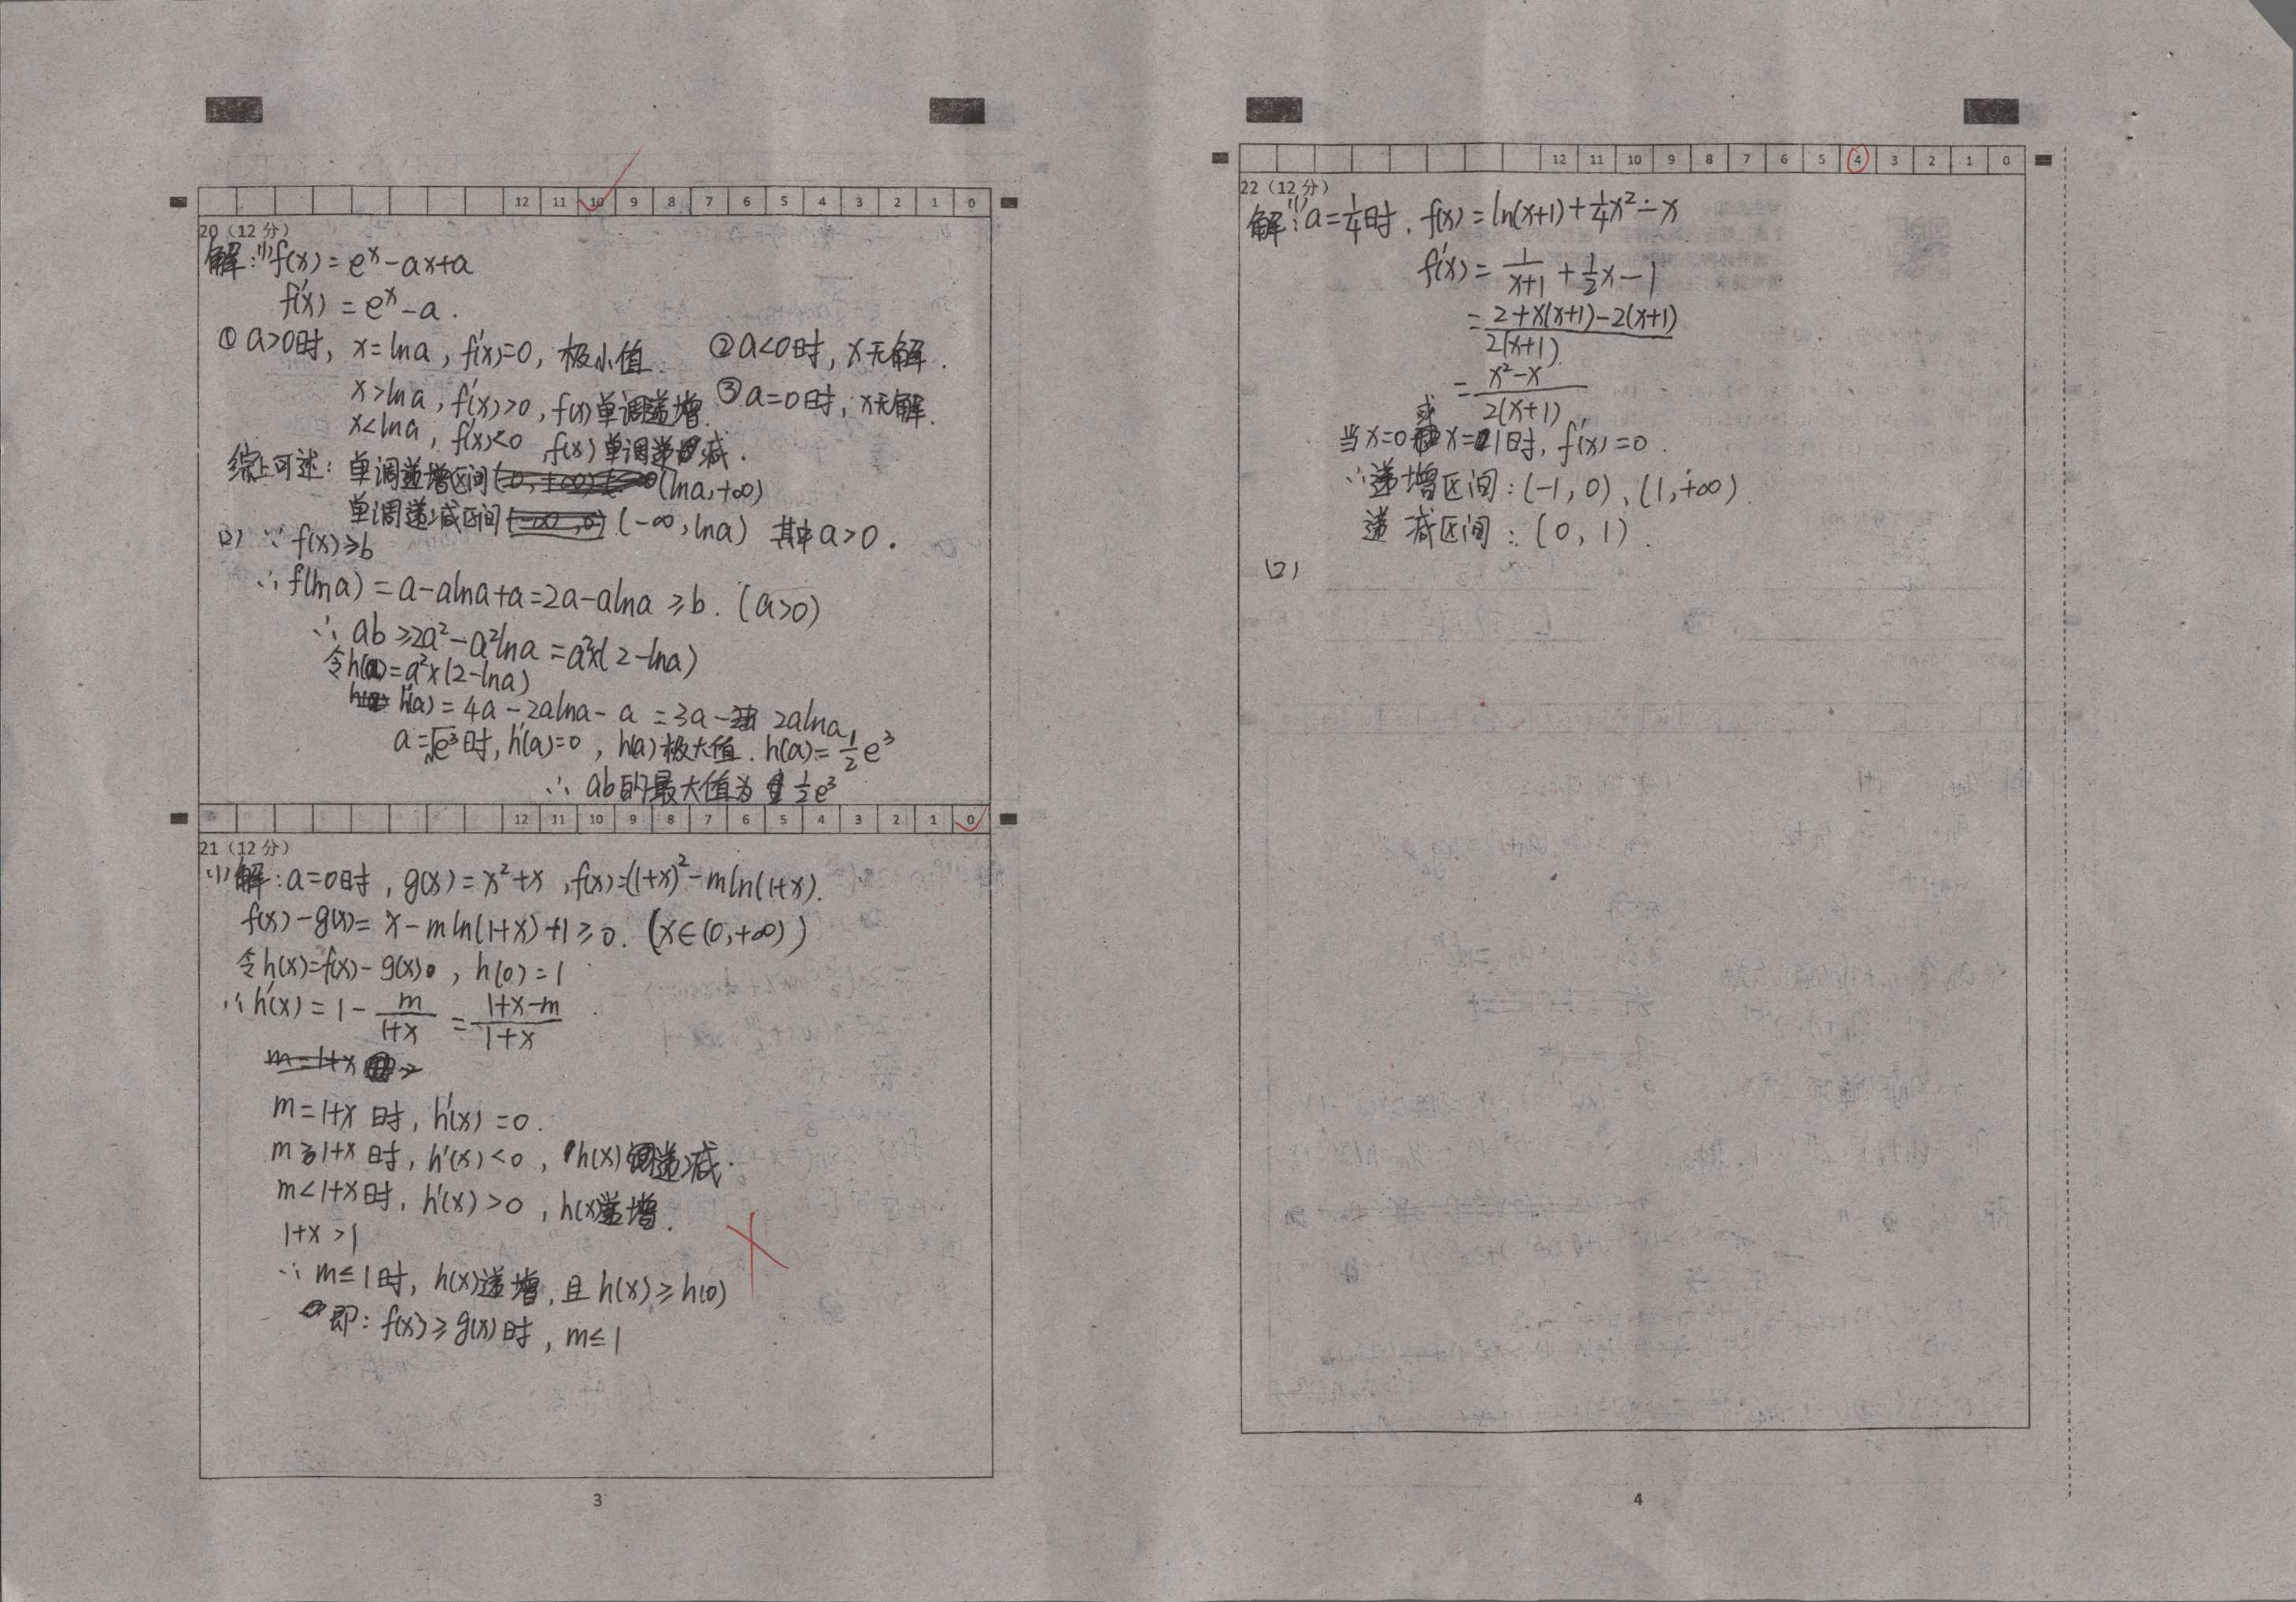 12 11 10 9 8 7 6 5 4 3 2 1 0
20（12 分）
解:(1) f(x)=eˣ-ax+a
f'(x)=eˣ-a.
① a>0时, x=lna, f'(x)=0, 极小值. ② a<0时, x无解.
x>lna, f'(x)>0, f(x)单调递增. ③ a=0时, x无解.
x<lna, f'(x)<0, f(x)单调递减.
综上可述: 单调递增区间(lna,+∞)
单调递减区间(-∞,lna) 其中a>0.
(2) ∵ f(x)≥b
∴ f(lna)=a-alna+a=2a-alna≥b. (a>0)
∴ ab≥2a²-a²lna=a²×(2-lna)
令h(a)=a²×(2-lna)
h'(a)=4a-2alna-a=3a-2alna
a=√e³时, h'(a)=0, h(a)极大值. h(a)=½e³
∴ ab的最大值为½e³
12 11 10 9 8 7 6 5 4 3 2 1 0
21（12 分）
(1) 解: a=0时, g(x)=x²+x, f(x)=(1+x)²-mln(1+x).
f(x)-g(x)=x-mln(1+x)+1≥0. (x∈(0,+∞))
令h(x)=f(x)-g(x), h(0)=1
∴ h'(x)=1-m/(1+x)=(1+x-m)/(1+x)
m=1+x
m=1+x时, h'(x)=0.
m≥1+x时, h'(x)<0, h(x)递减.
m<1+x时, h'(x)>0, h(x)递增.
1+x>1
∴ m≤1时, h(x)递增, 且h(x)≥h(0)
即: f(x)≥g(x)时, m≤1
3
12 11 10 9 8 7 6 5 4 3 2 1 0
22（12 分）
解:(1) a=¼时, f(x)=ln(x+1)+¼x²-x
f'(x)=1/(x+1)+½x-1
=(2+x(x+1)-2(x+1))/(2(x+1))
=(x²-x)/(2(x+1))
当x=0或x=1时, f'(x)=0.
∴递增区间: (-1,0)、(1,+∞).
递减区间: (0,1).
(2)
4